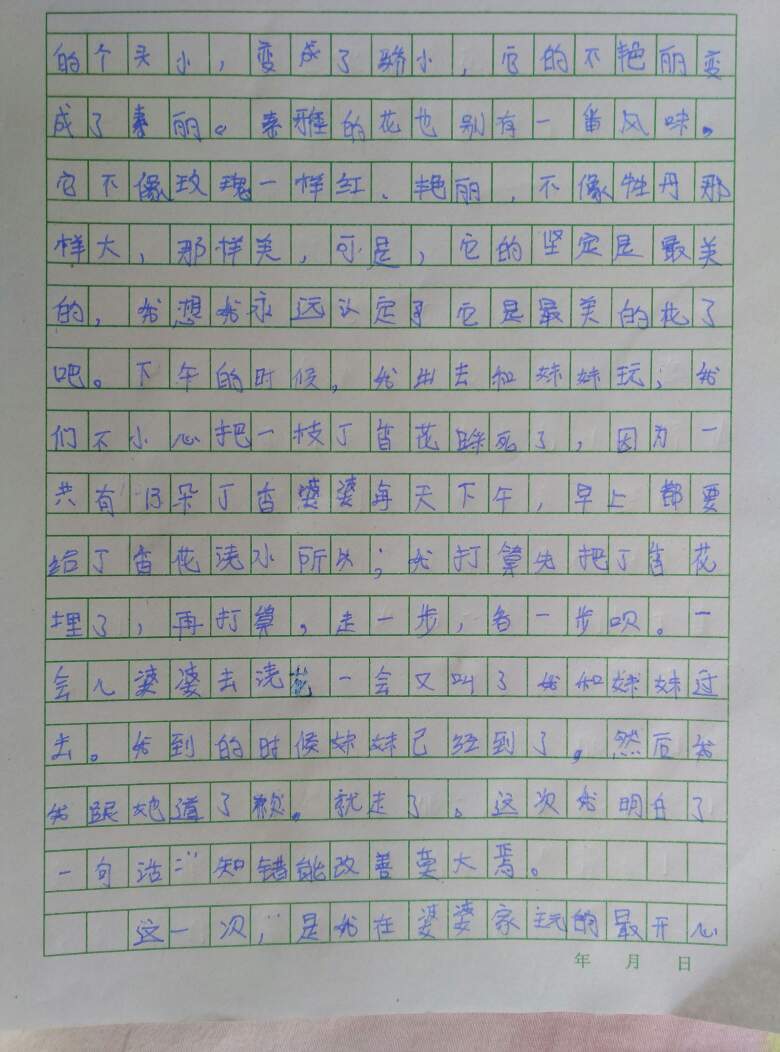 的个头小，变成了骄小，它的不艳丽变
成了素丽。素雅的花也别有一番风味。
它不像玫瑰一样红、艳丽，不像牡丹那
样大，那样美，可是，它的坚定是最美
的，我想我永远认定了它是最美的花了
吧。下午的时候，我出去和妹妹玩；我
们不小心把一枝丁香花踩死了，因为一
共有13朵丁香婆婆每天下午，早上都要
给丁香花浇水所以；我打算先把丁香花
埋了，再打算，走一步，看一步呗。一
会儿婆婆去浇花一会又叫了我和妹妹过
去。我到的时候妹妹已经到了，然后我
我跟她道了歉。就走了。这次我明白了
一句话："知错能改善莫大焉。
这一次，是我在婆婆家玩的最开心
年 月 日